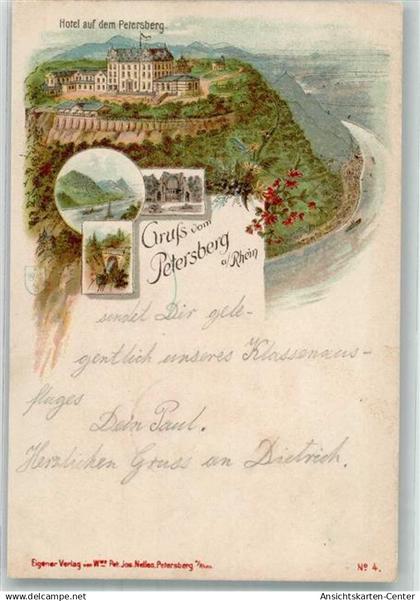 Hotel auf dem Petersberg
Gruß vom
Petersberg
a/Rhein
sendet Dir gele-
gentlich unseres Klassenaus-
fluges
Dein Paul.
Herzlichen Gruss an Dietrich.
Eigener Verlag von Wwe Pet. Jos. Nelles, Petersberg a/Rhein.
No 4.
Ansichtskarten-Center